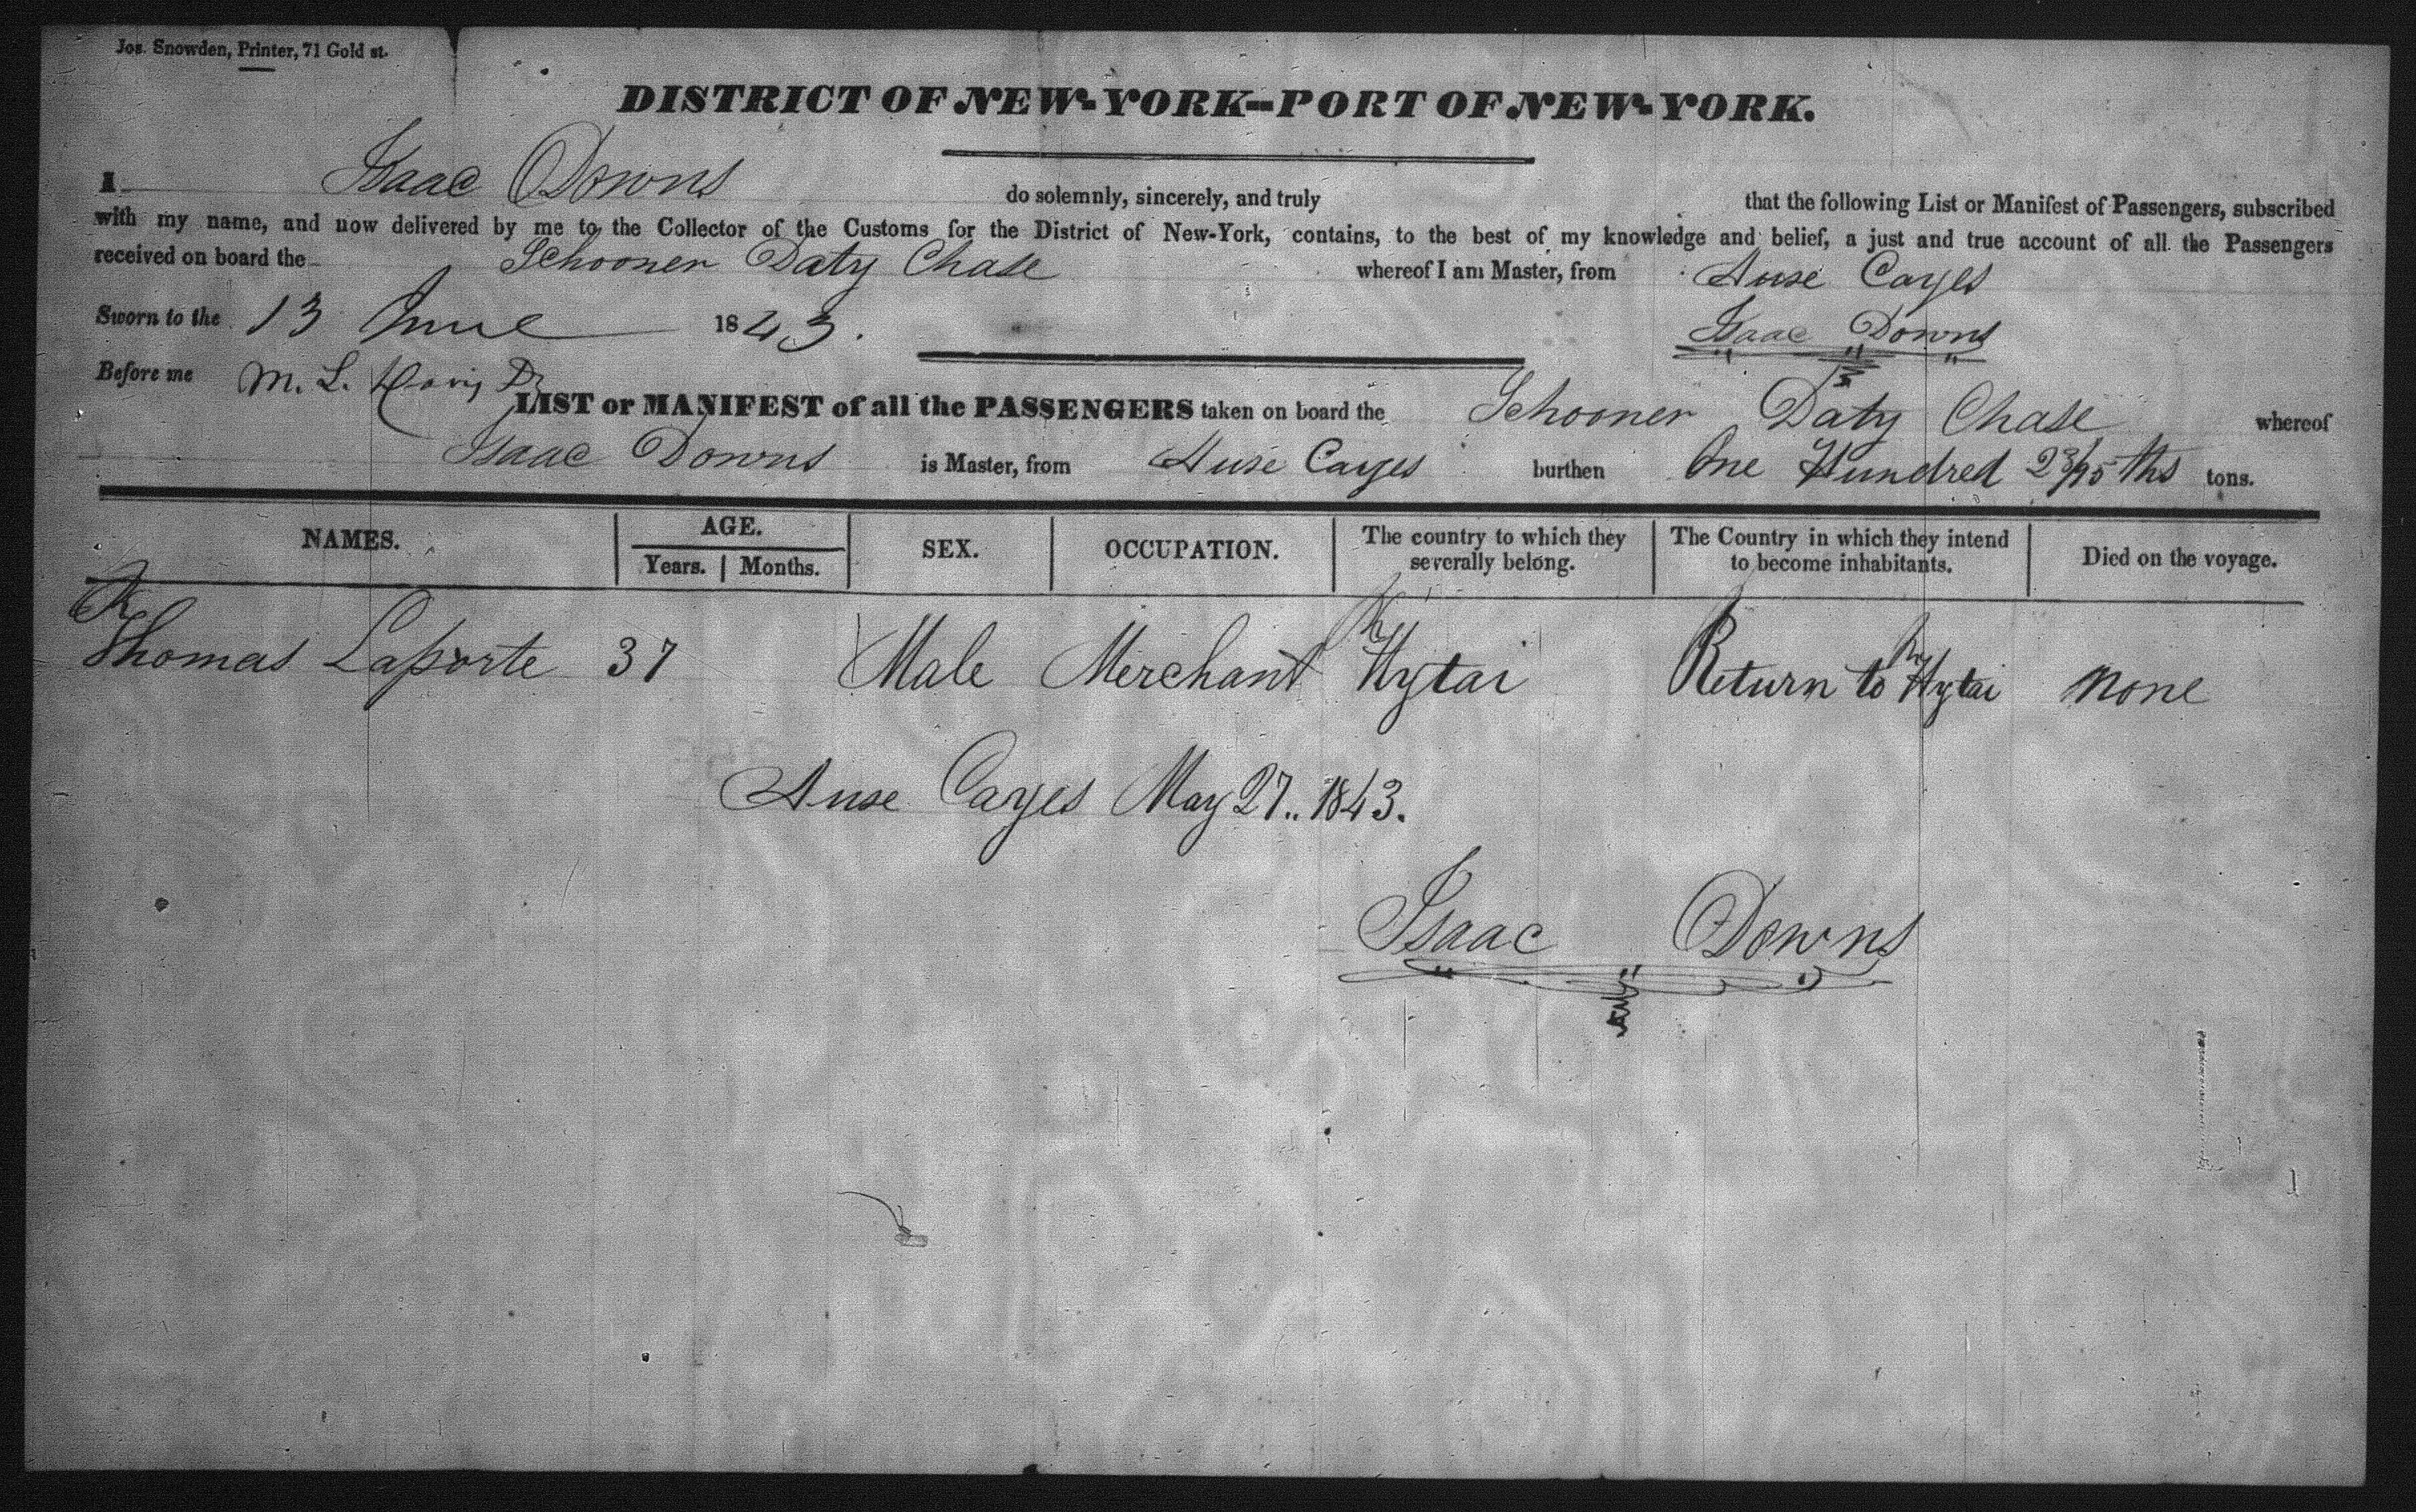 Jos. Snowden, Printer, 71 Gold st.
DISTRICT OF NEW-YORK--PORT OF NEW-YORK.
I Isaac Downs do solemnly, sincerely, and truly that the following List or Manifest of Passengers, subscribed
with my name, and now delivered by me to the Collector of the Customs for the District of New-York, contains, to the best of my knowledge and belief, a just and true account of all the Passengers
received on board the Schooner Daty Chase whereof I am Master, from Ause Cayes
Sworn to the 13 June 1843. Isaac Downs
Before me M. L. Davis
LIST or MANIFEST of all the PASSENGERS taken on board the Schooner Daty Chase whereof
Isaac Downs is Master, from Ause Cayes burthen One Hundred 23/95 ths tons.
NAMES. AGE. SEX. OCCUPATION. The country to which they severally belong. The Country in which they intend to become inhabitants. Died on the voyage.
Years. Months.
Thomas Laporte 37 Male Merchant Hytai Return to Hytai none
Ause Cayes May 27.. 1843.
Isaac Downs